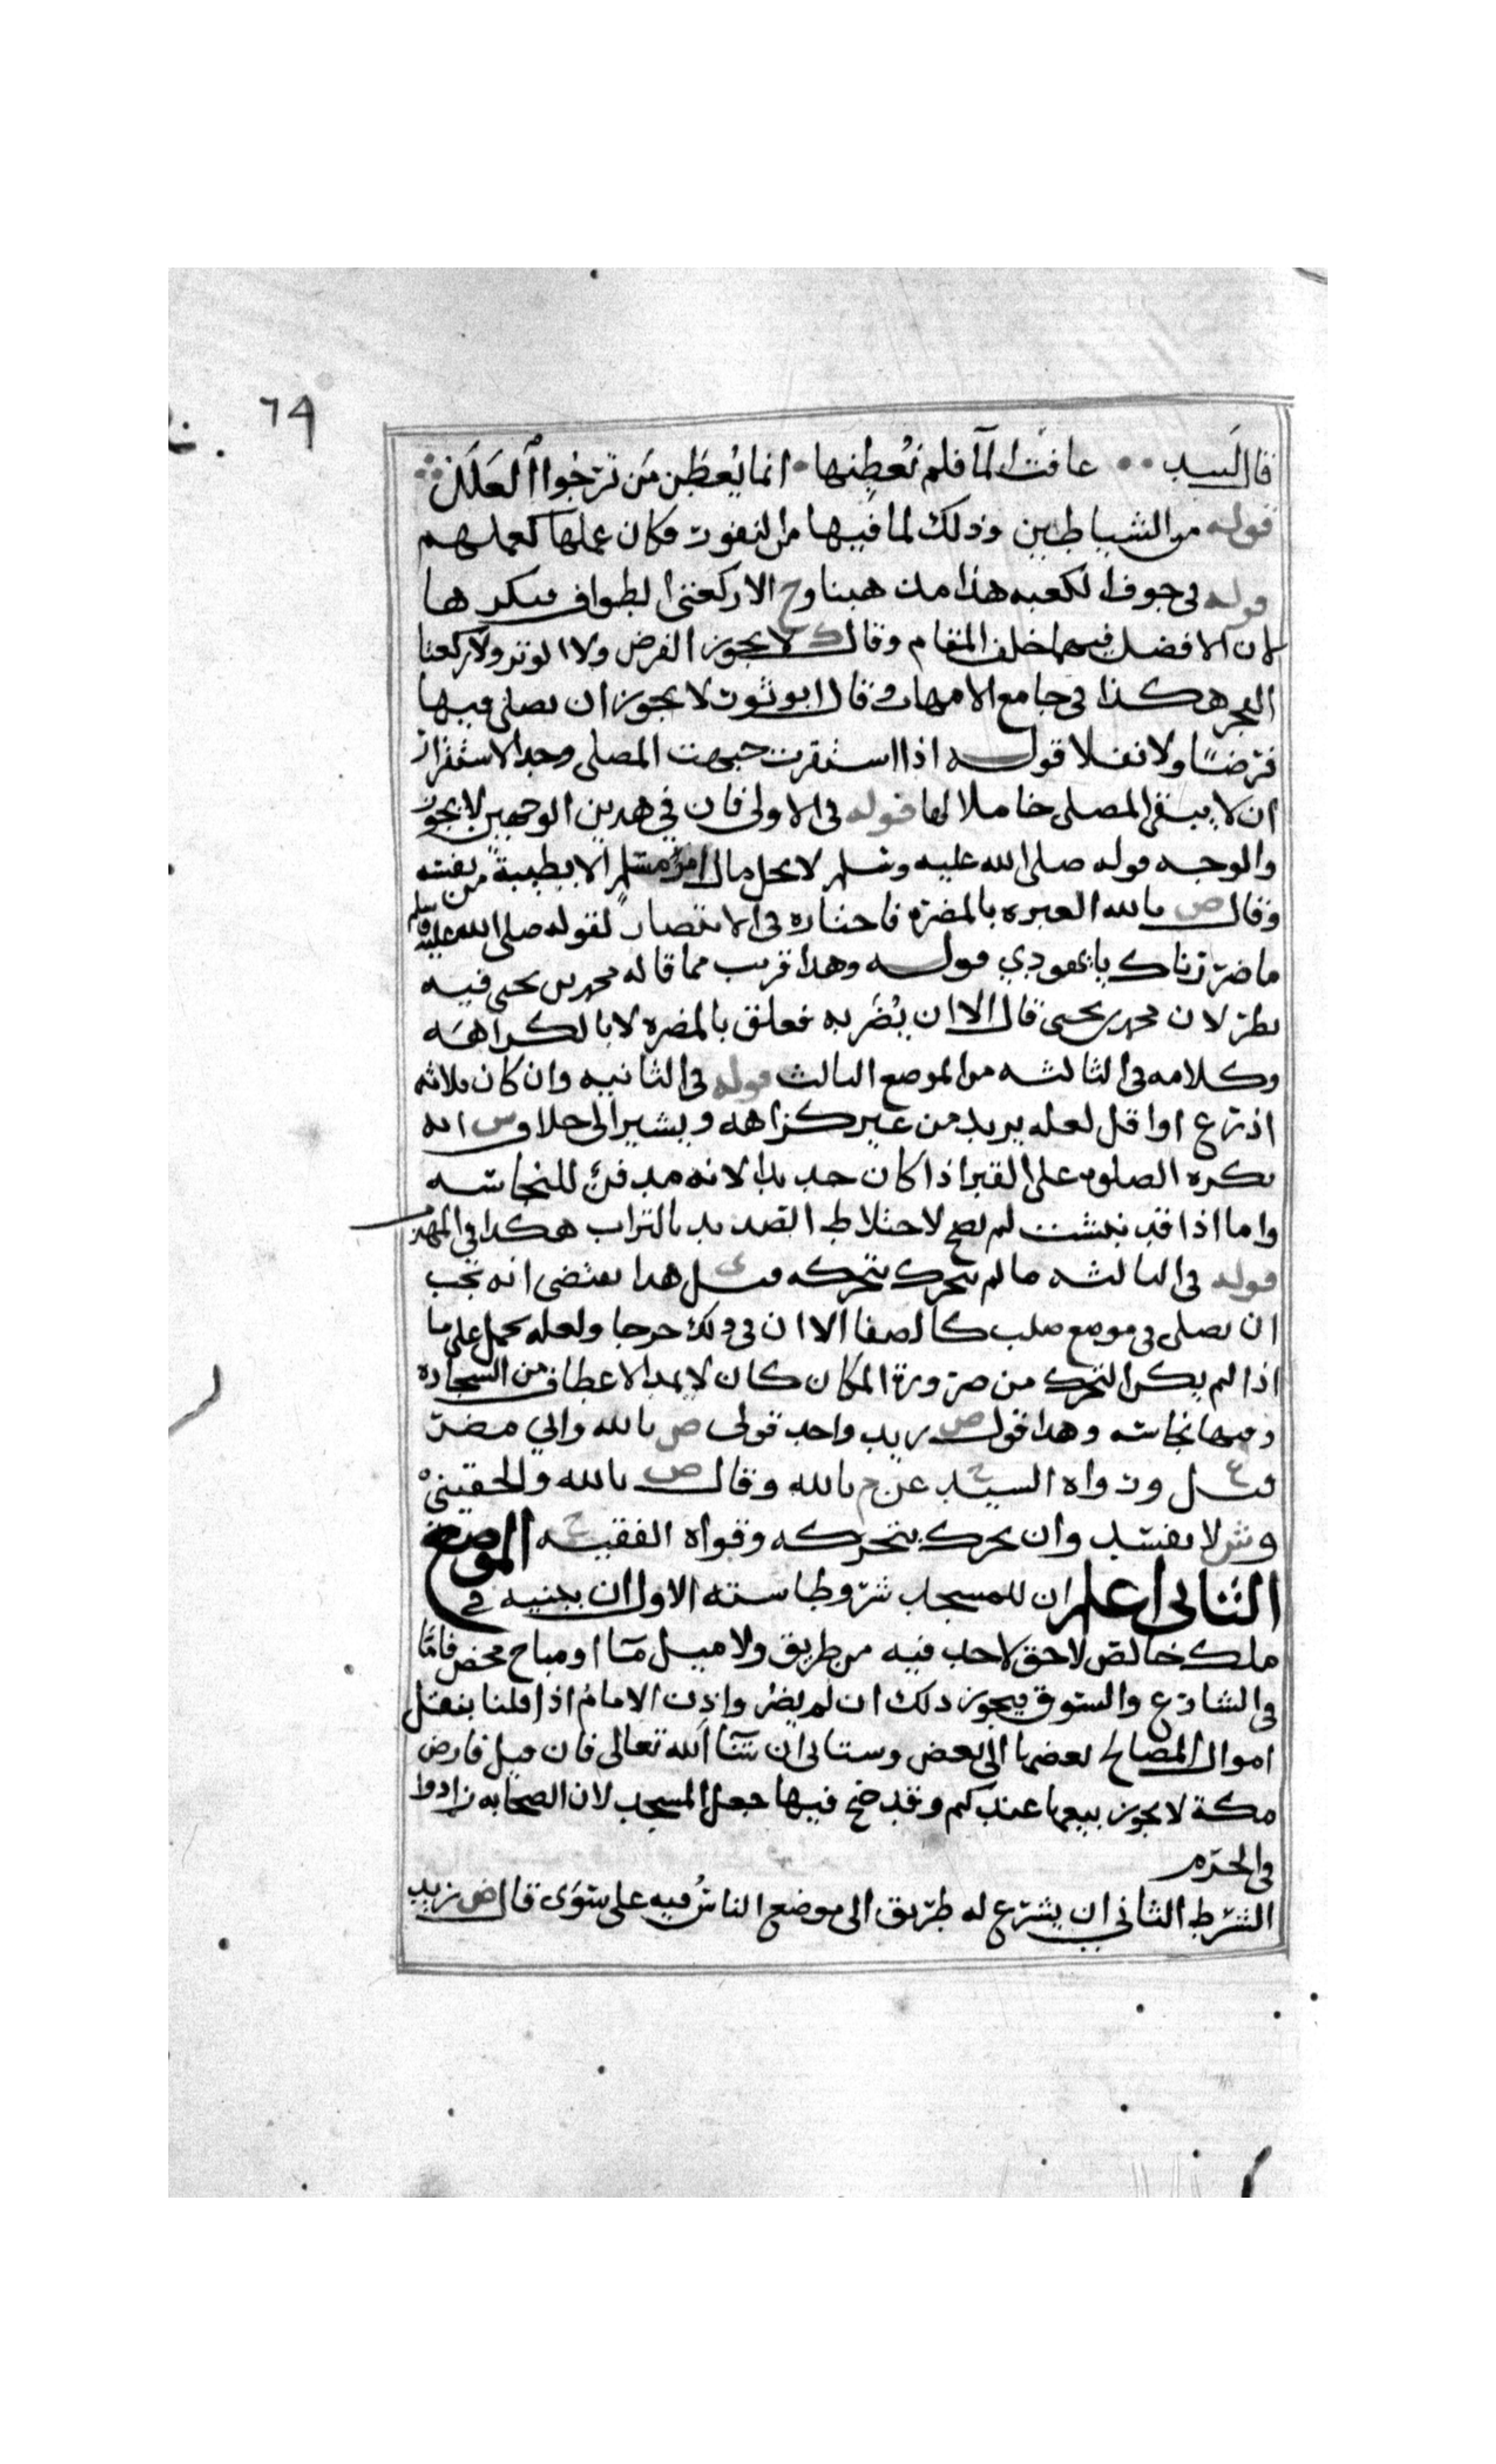 ٦٩
قال لبيد عافتا الما فلم نعطنها انما يعطن من ترجوا العلل
قوله من الشياطين وذلك لما فيها من النفور فكان عملها كعملهم
قوله في جوف الكعبه هذا مذهبنا وح الا ركعتي الطواف فيكرها
لان الافضل فيهما خلف المقام وقال ك لا يجوز الفرض ولا الوتر ولا ركعتا
الفجر هكذا في جامع الامهات وقال ابو ثور لا يجوز ان يصلي فيها
فرضا ولا نفلا قوله اذا استقرت جبهت المصلي وحد الاستقرار
ان لا يبقى المصلي حاملا لها قوله في الاولى فان في هذين الوجهين لا يجوز
والوجه قوله صلى الله عليه وسلم لا يحل مال امرئ مسلم الا بطيبة من نفسه
وقال ص بالله العبره بالمضرة فاختاره في الانتصار لقوله صلى الله عليه وسلم
ما ضررناك يا يهودي قوله وهذا قريب مما قاله محمد بن يحيى فيه
نظر لان محمد بن يحيى قال الا ان يضر به فعلق بالمضره لا بالكراهه
وكلامه في الثالثه من الموضع الثالث قوله في الثانيه وان كان ثلاثه
اذرع او اقل لعله يريد من غير كراهه ويشير الى خلاف س انه
يكره الصلوه على القبر اذا كان جديدا لانه مدفن للنجاسه
واما اذا قد نبشت لم يصح لاختلاط الصديد بالتراب هكذا في المهذب
قوله في الثالثه ما لم يتحرك بتحركه قيل ى هذا يقتضي انه يجب
ان يصلي في موضع صلب كالصفا الا ان في ذلك حرجا ولعله يحمل على ما
اذا لم يكن التحرك من ضرورة المكان كان لا يمد الاعطاف من السجاده
وفيها نجاسه وهذا قول ص زيد واحد قولي ص بالله وابي مضر
قيل ع ورواه السيد ح عن م بالله وقال ص بالله والحقيني
وش لا يفسد وان تحرك بتحركه وقواه الفقيه ح الموضع
الثاني اعلم ان للمسجد شروطا سته الاول ان يبنيه في
ملك خالص لا حق لاحد فيه من طريق ولا مسيل ما او مباح محض فاما
في الشارع والسوق فيجوز ذلك ان لم يضر واذن الامام اذا قلنا بنقل
اموال المصالح بعضها الى بعض وستاتي ان شا الله تعالى فان قيل فارض
مكة لا يجوز بيعها عندكم وقد صح فيها جعل المسجد لان الصحابه زادوا
في الحرم
الشرط الثاني ان يشرع له طريق الى موضع الناس فيه على سوى قال ص زيد